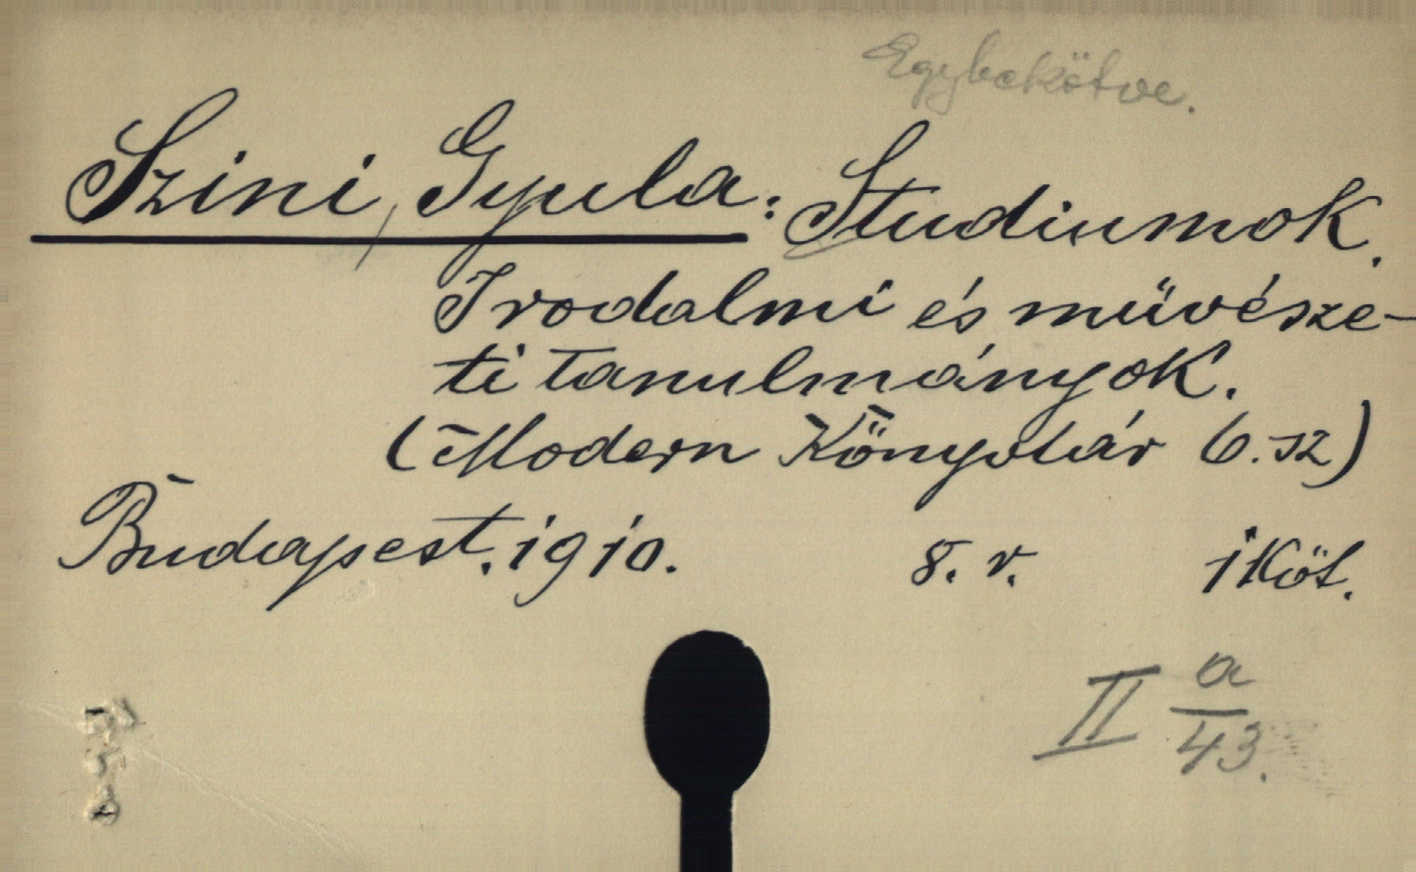 Egybekötve.
Szini, Gyula: Studiumok.
Irodalmi és müvésze-
ti tanulmányok.
(Modern Könyvtár 6. sz)
Budapest. 1910. 8. r. 1 Köt.
II a/43.